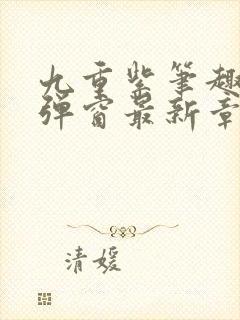 九重紫笔趣
弹窗最新章
清媛